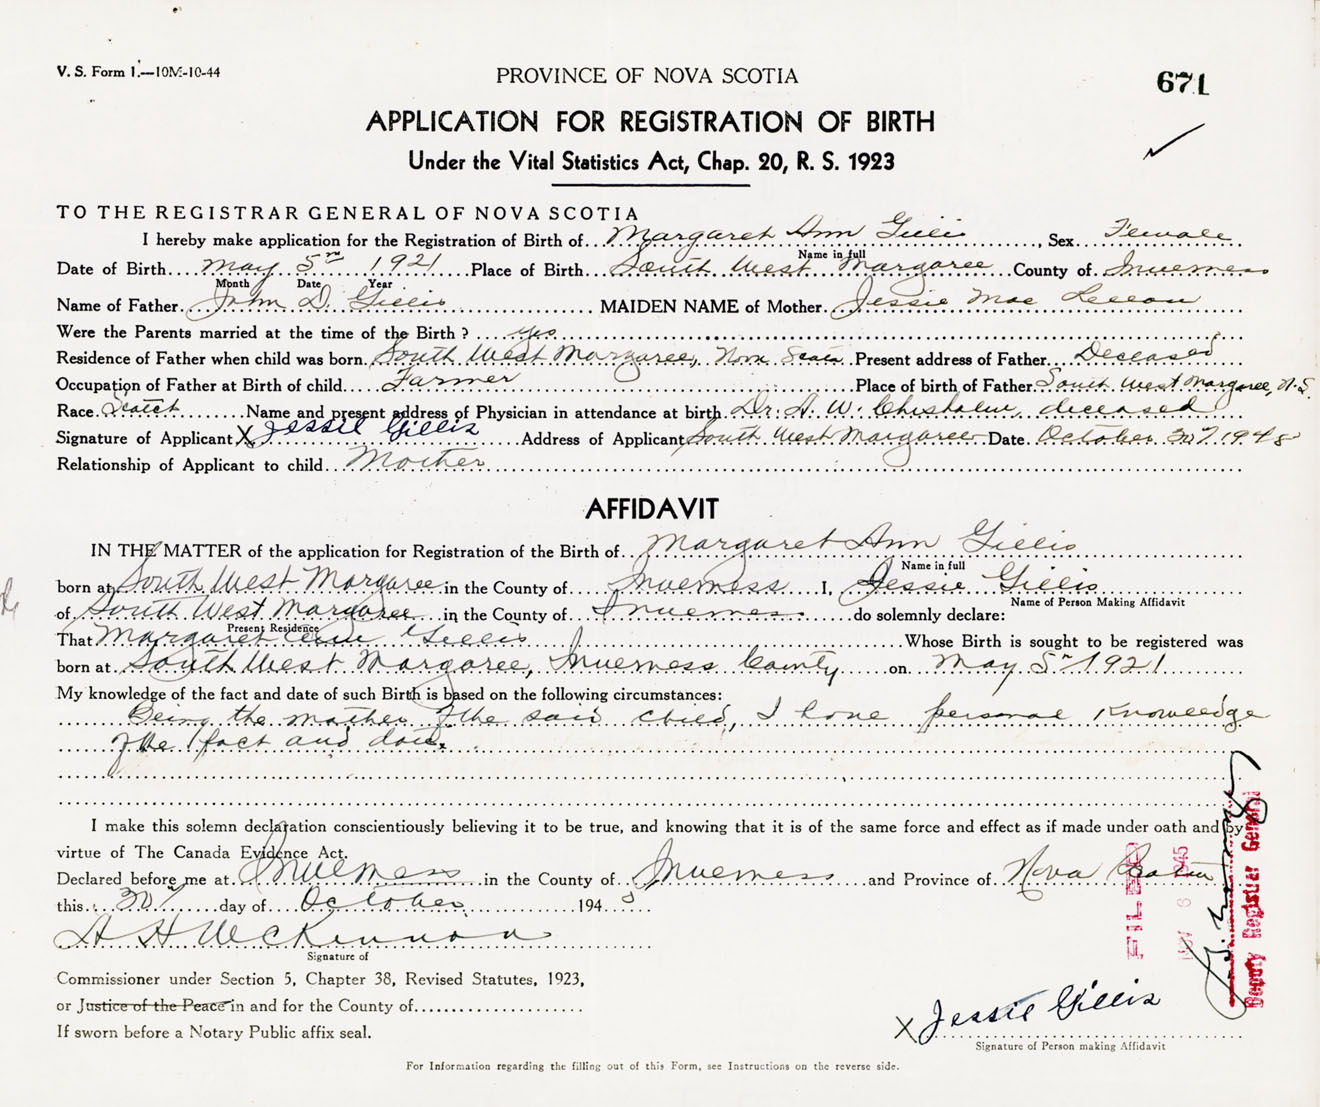 V. S. Form 1.—10M-10-44
PROVINCE OF NOVA SCOTIA
671
APPLICATION FOR REGISTRATION OF BIRTH
Under the Vital Statistics Act, Chap. 20, R. S. 1923
TO THE REGISTRAR GENERAL OF NOVA SCOTIA
I hereby make application for the Registration of Birth of Margaret Ann Gillis, Sex Female
Name in full
Date of Birth May 5th 1921 Place of Birth South West Margaree County of Inverness
Month Date Year
Name of Father John D. Gillis MAIDEN NAME of Mother Jessie Mac Lellan
Were the Parents married at the time of the Birth? yes
Residence of Father when child was born South West Margaree, Nova Scotia Present address of Father Deceased
Occupation of Father at Birth of child Farmer Place of birth of Father South West Margaree, N.S.
Race Scotch Name and present address of Physician in attendance at birth Dr. A. W. Chisholm, deceased
Signature of Applicant X Jessie Gillis Address of Applicant South West Margaree Date October 30th 194
Relationship of Applicant to child Mother
AFFIDAVIT
IN THE MATTER of the application for Registration of the Birth of Margaret Ann Gillis
Name in full
born at South West Margaree in the County of Inverness I, Jessie Gillis
Name of Person Making Affidavit
of South West Margaree in the County of Inverness do solemnly declare:
Present Residence
That Margaret Ann Gillis Whose Birth is sought to be registered was
born at South West Margaree, Inverness County on May 5th 1921
My knowledge of the fact and date of such Birth is based on the following circumstances:
Being the mother of the said child, I have personal knowledge
of the fact and date.
I make this solemn declaration conscientiously believing it to be true, and knowing that it is of the same force and effect as if made under oath and by
virtue of The Canada Evidence Act.
Declared before me at Inverness in the County of Inverness and Province of Nova Scotia
this 30th day of October 1945
A H McKinnon
Signature of
Commissioner under Section 5, Chapter 38, Revised Statutes, 1923,
or Justice of the Peace in and for the County of
If sworn before a Notary Public affix seal.
FILED
NOV 6 1945
Deputy Registrar General
X Jessie Gillis
Signature of Person making Affidavit
For Information regarding the filling out of this Form, see Instructions on the reverse side.